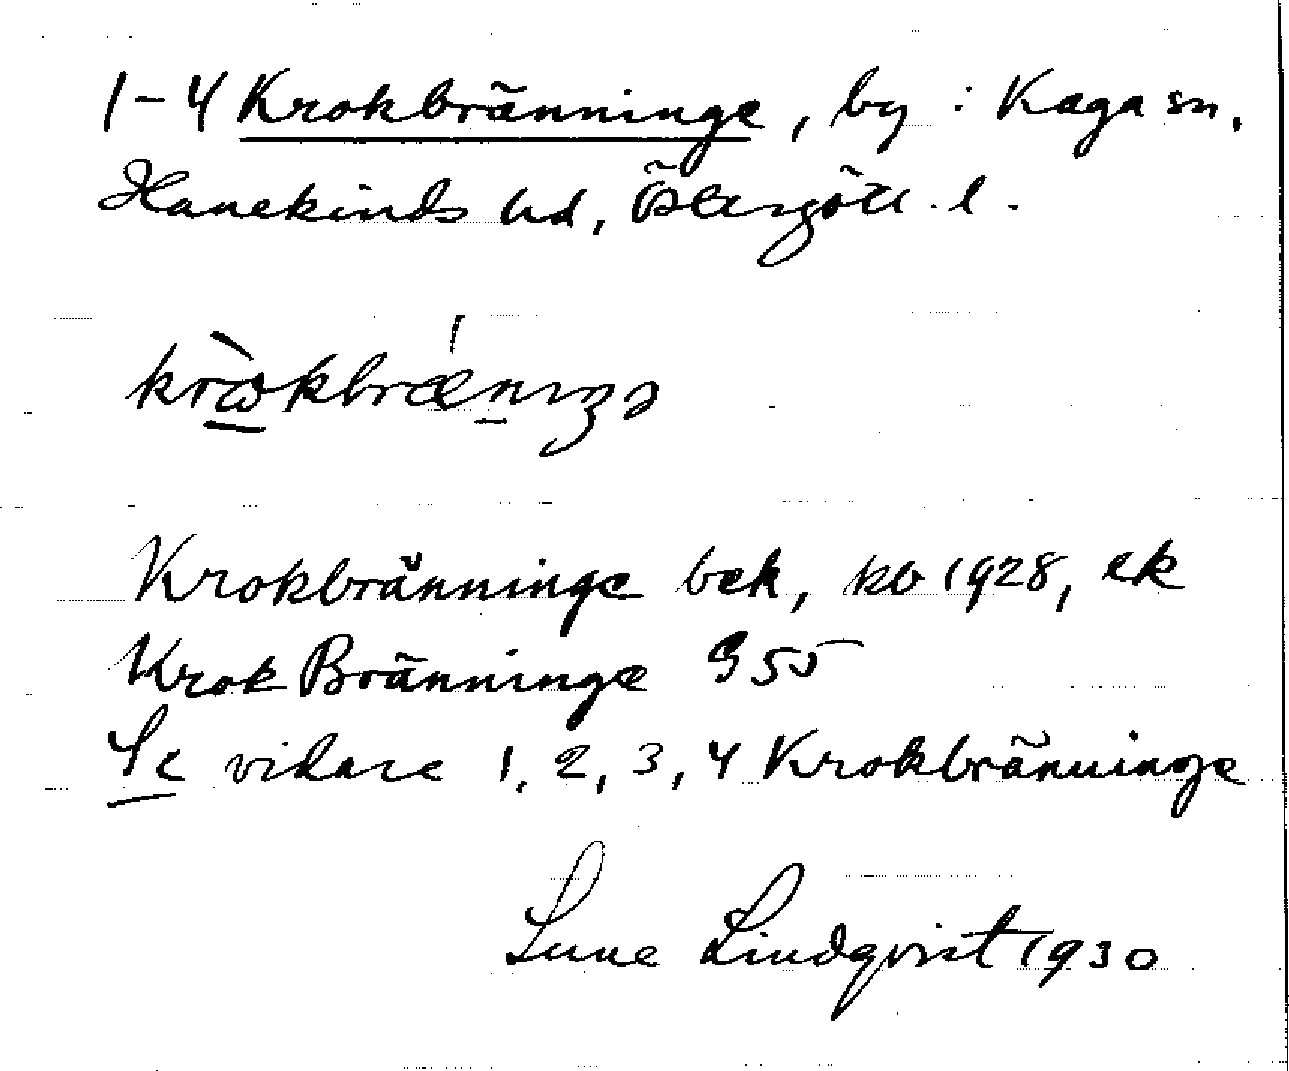 1-4 Krokbränninge, by i Kaga sn,
Hanekinds hd, Östergötl. l.
Krokbränninge bek, kb 1928, ek
Krok Bränninge 955
Se vidare 1, 2, 3, 4 Krokbränninge
Sune Lindqvist 1930